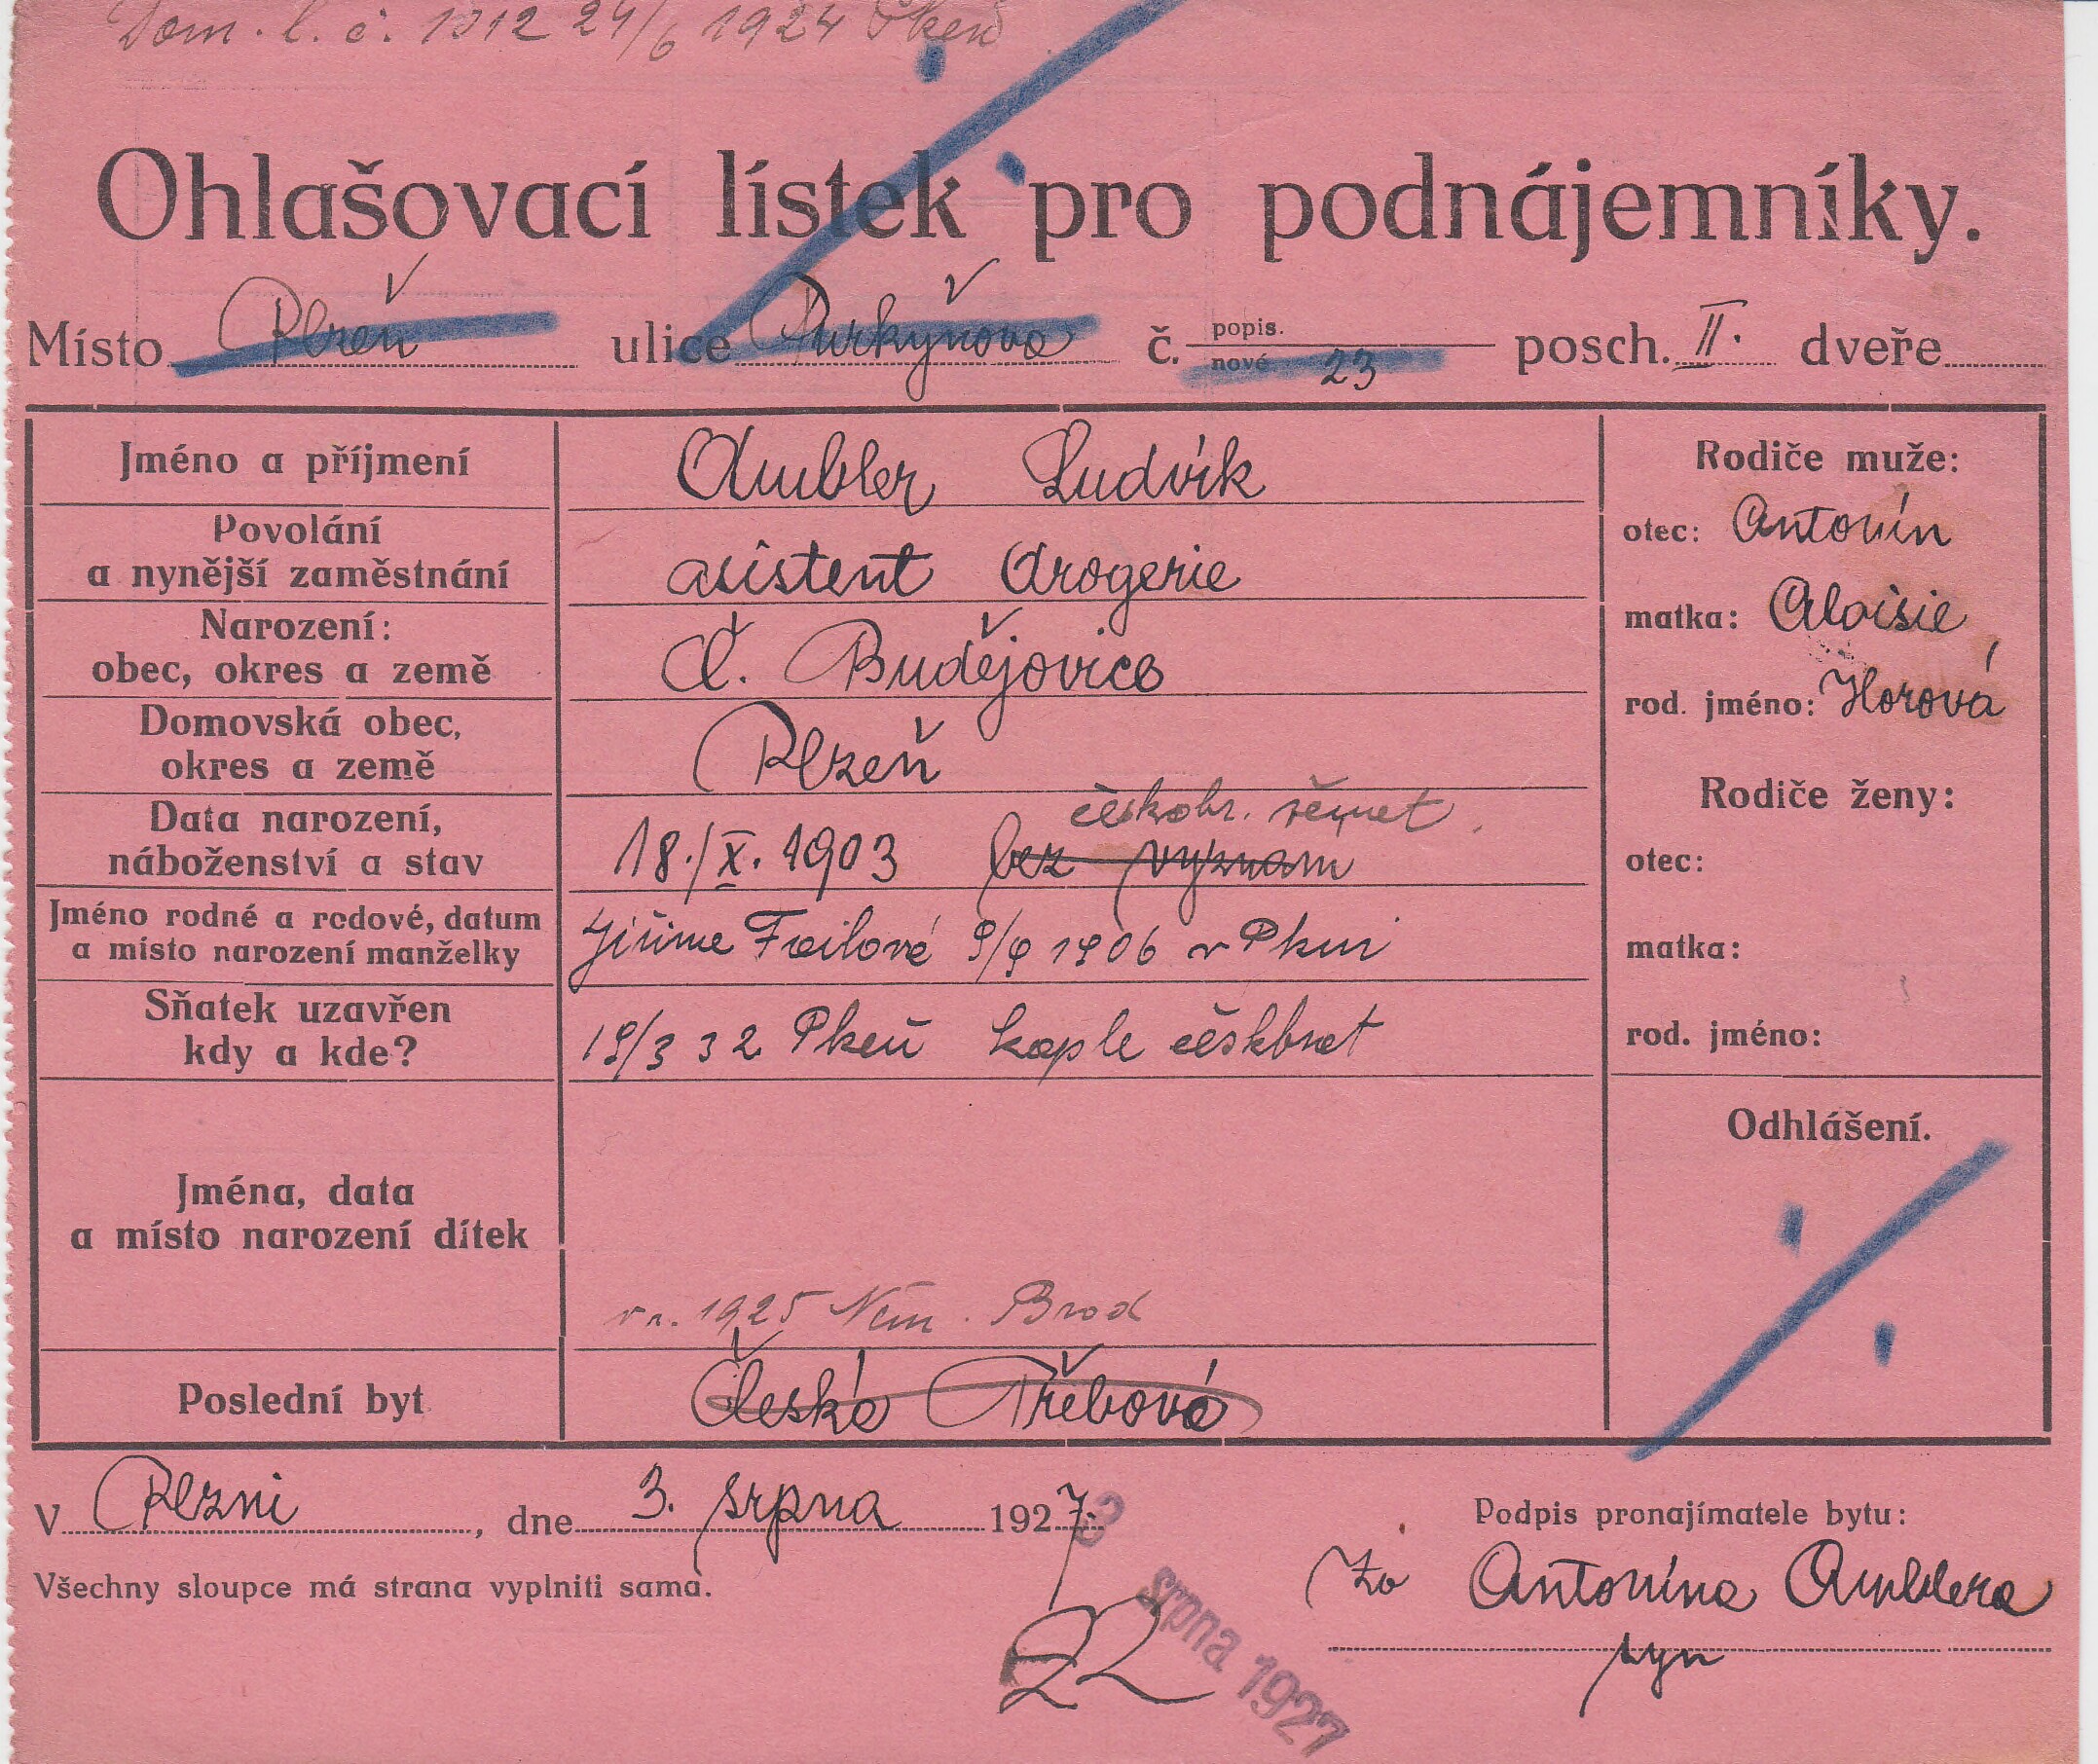 Dom. l. č. 1012 24/6 1924 Plzeň
Ohlašovací lístek pro podnájemníky.
Místo Plzeň ulice Purkyňova č. popis. nové 23 posch. II. dveře
Jméno a příjmení Ambler Ludvík
Povolání
a nynější zaměstnání asistent drogerie
Narození:
obec, okres a země Č. Budějovice
Domovská obec,
okres a země Plzeň
českobr.
Data narození,
náboženství a stav 18./X. 1903 bez vyznam
Jméno rodné a rodové, datum
a místo narození manželky 1906 v Plzni
Sňatek uzavřen
kdy a kde? 19/3 32 Plzeň kaple
Jména, data
a místo narození dítek
v r. 1925 Něm. Brod
Poslední byt Česká Třebová
Rodiče muže:
otec: Antonín
matka: Aloisie
rod. jméno: Horová
Rodiče ženy:
otec:
matka:
rod. jméno:
Odhlášení.
V Plzni, dne 3. srpna 1927
Všechny sloupce má strana vyplniti sama.
Podpis pronajímatele bytu:
Za Antonína Amblera
syn
22
3 srpna 1927